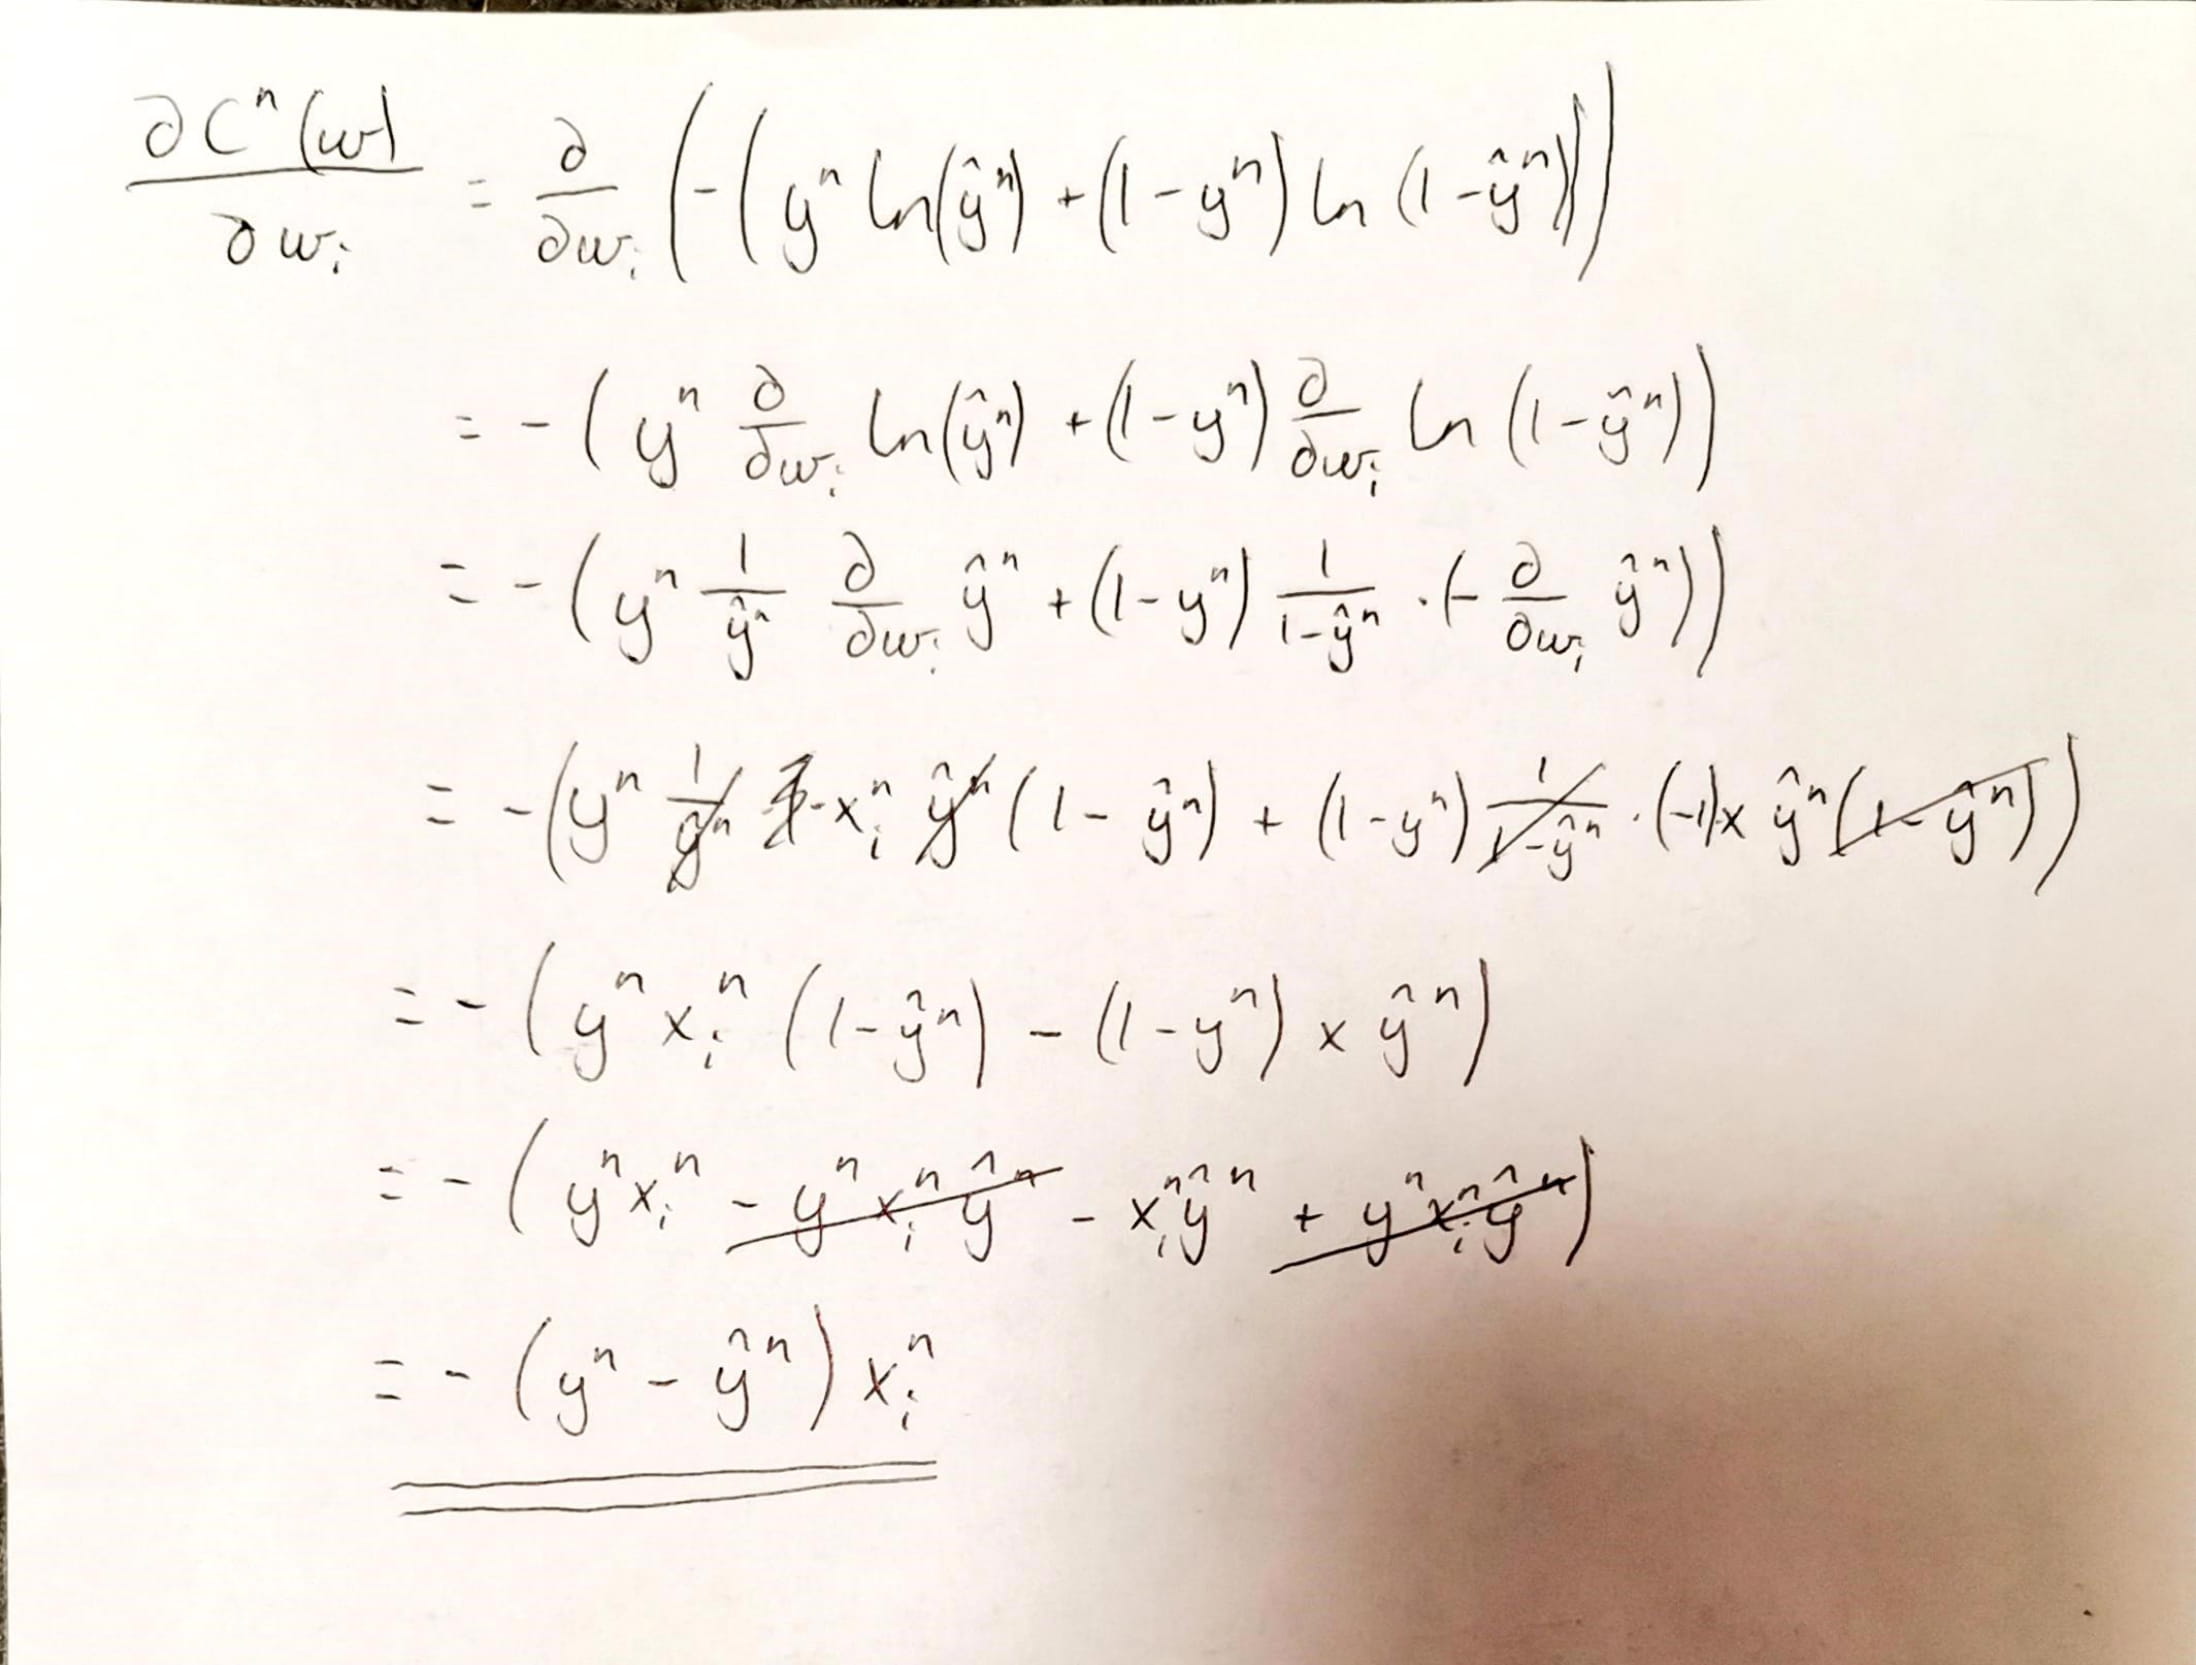 ∂Cⁿ(w)/∂wᵢ = ∂/∂wᵢ (-(yⁿ ln(ŷⁿ) + (1-yⁿ) ln (1-ŷⁿ)))
= -(yⁿ ∂/∂wᵢ ln(ŷⁿ) + (1-yⁿ) ∂/∂wᵢ ln (1-ŷⁿ))
= -(yⁿ 1/ŷⁿ ∂/∂wᵢ ŷⁿ + (1-yⁿ) 1/(1-ŷⁿ) · (-∂/∂wᵢ ŷⁿ))
= -(yⁿ 1/ŷⁿ · xᵢⁿ ŷⁿ (1-ŷⁿ) + (1-yⁿ) 1/(1-ŷⁿ) · (-1)x ŷⁿ(1-ŷⁿ))
= -(yⁿ xᵢⁿ (1-ŷⁿ) - (1-yⁿ) x ŷⁿ)
= -(yⁿxᵢⁿ - yⁿ xᵢⁿ ŷⁿ - xᵢⁿŷⁿ + yⁿxᵢⁿŷⁿ)
= -(yⁿ - ŷⁿ) xᵢⁿ